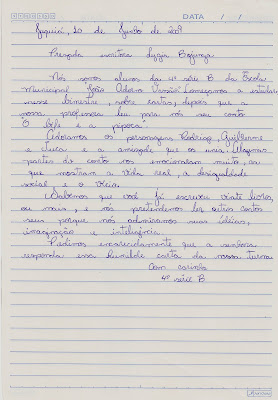 DATA / /
20 de Junho de 2009
Prezada escritora Lygia Bojunga
Nós somos alunos da 4ª série B da Escola
Municipal João Adorno Vassão. Começamos a estudar
nesse bimestre, sobre cartas, depois que a
nossa professora leu para nós seu conto
O bife e a pipoca.
Adoramos os personagens Rodrigo, Guilherme
e Tuca e a amizade que os unia. Algumas
partes do conto nos emocionaram muito, as
que mostraram a vida real, a desigualdade
social e o vício.
Sabemos que você já escreveu vinte livros,
ou mais, e nós pretendemos ler outros contos
seus porque nós admiramos suas idéias,
imaginação e inteligência.
Pedimos encarecidamente que a senhora
responda essa humilde carta da nossa turma
Com carinho
4ª série B